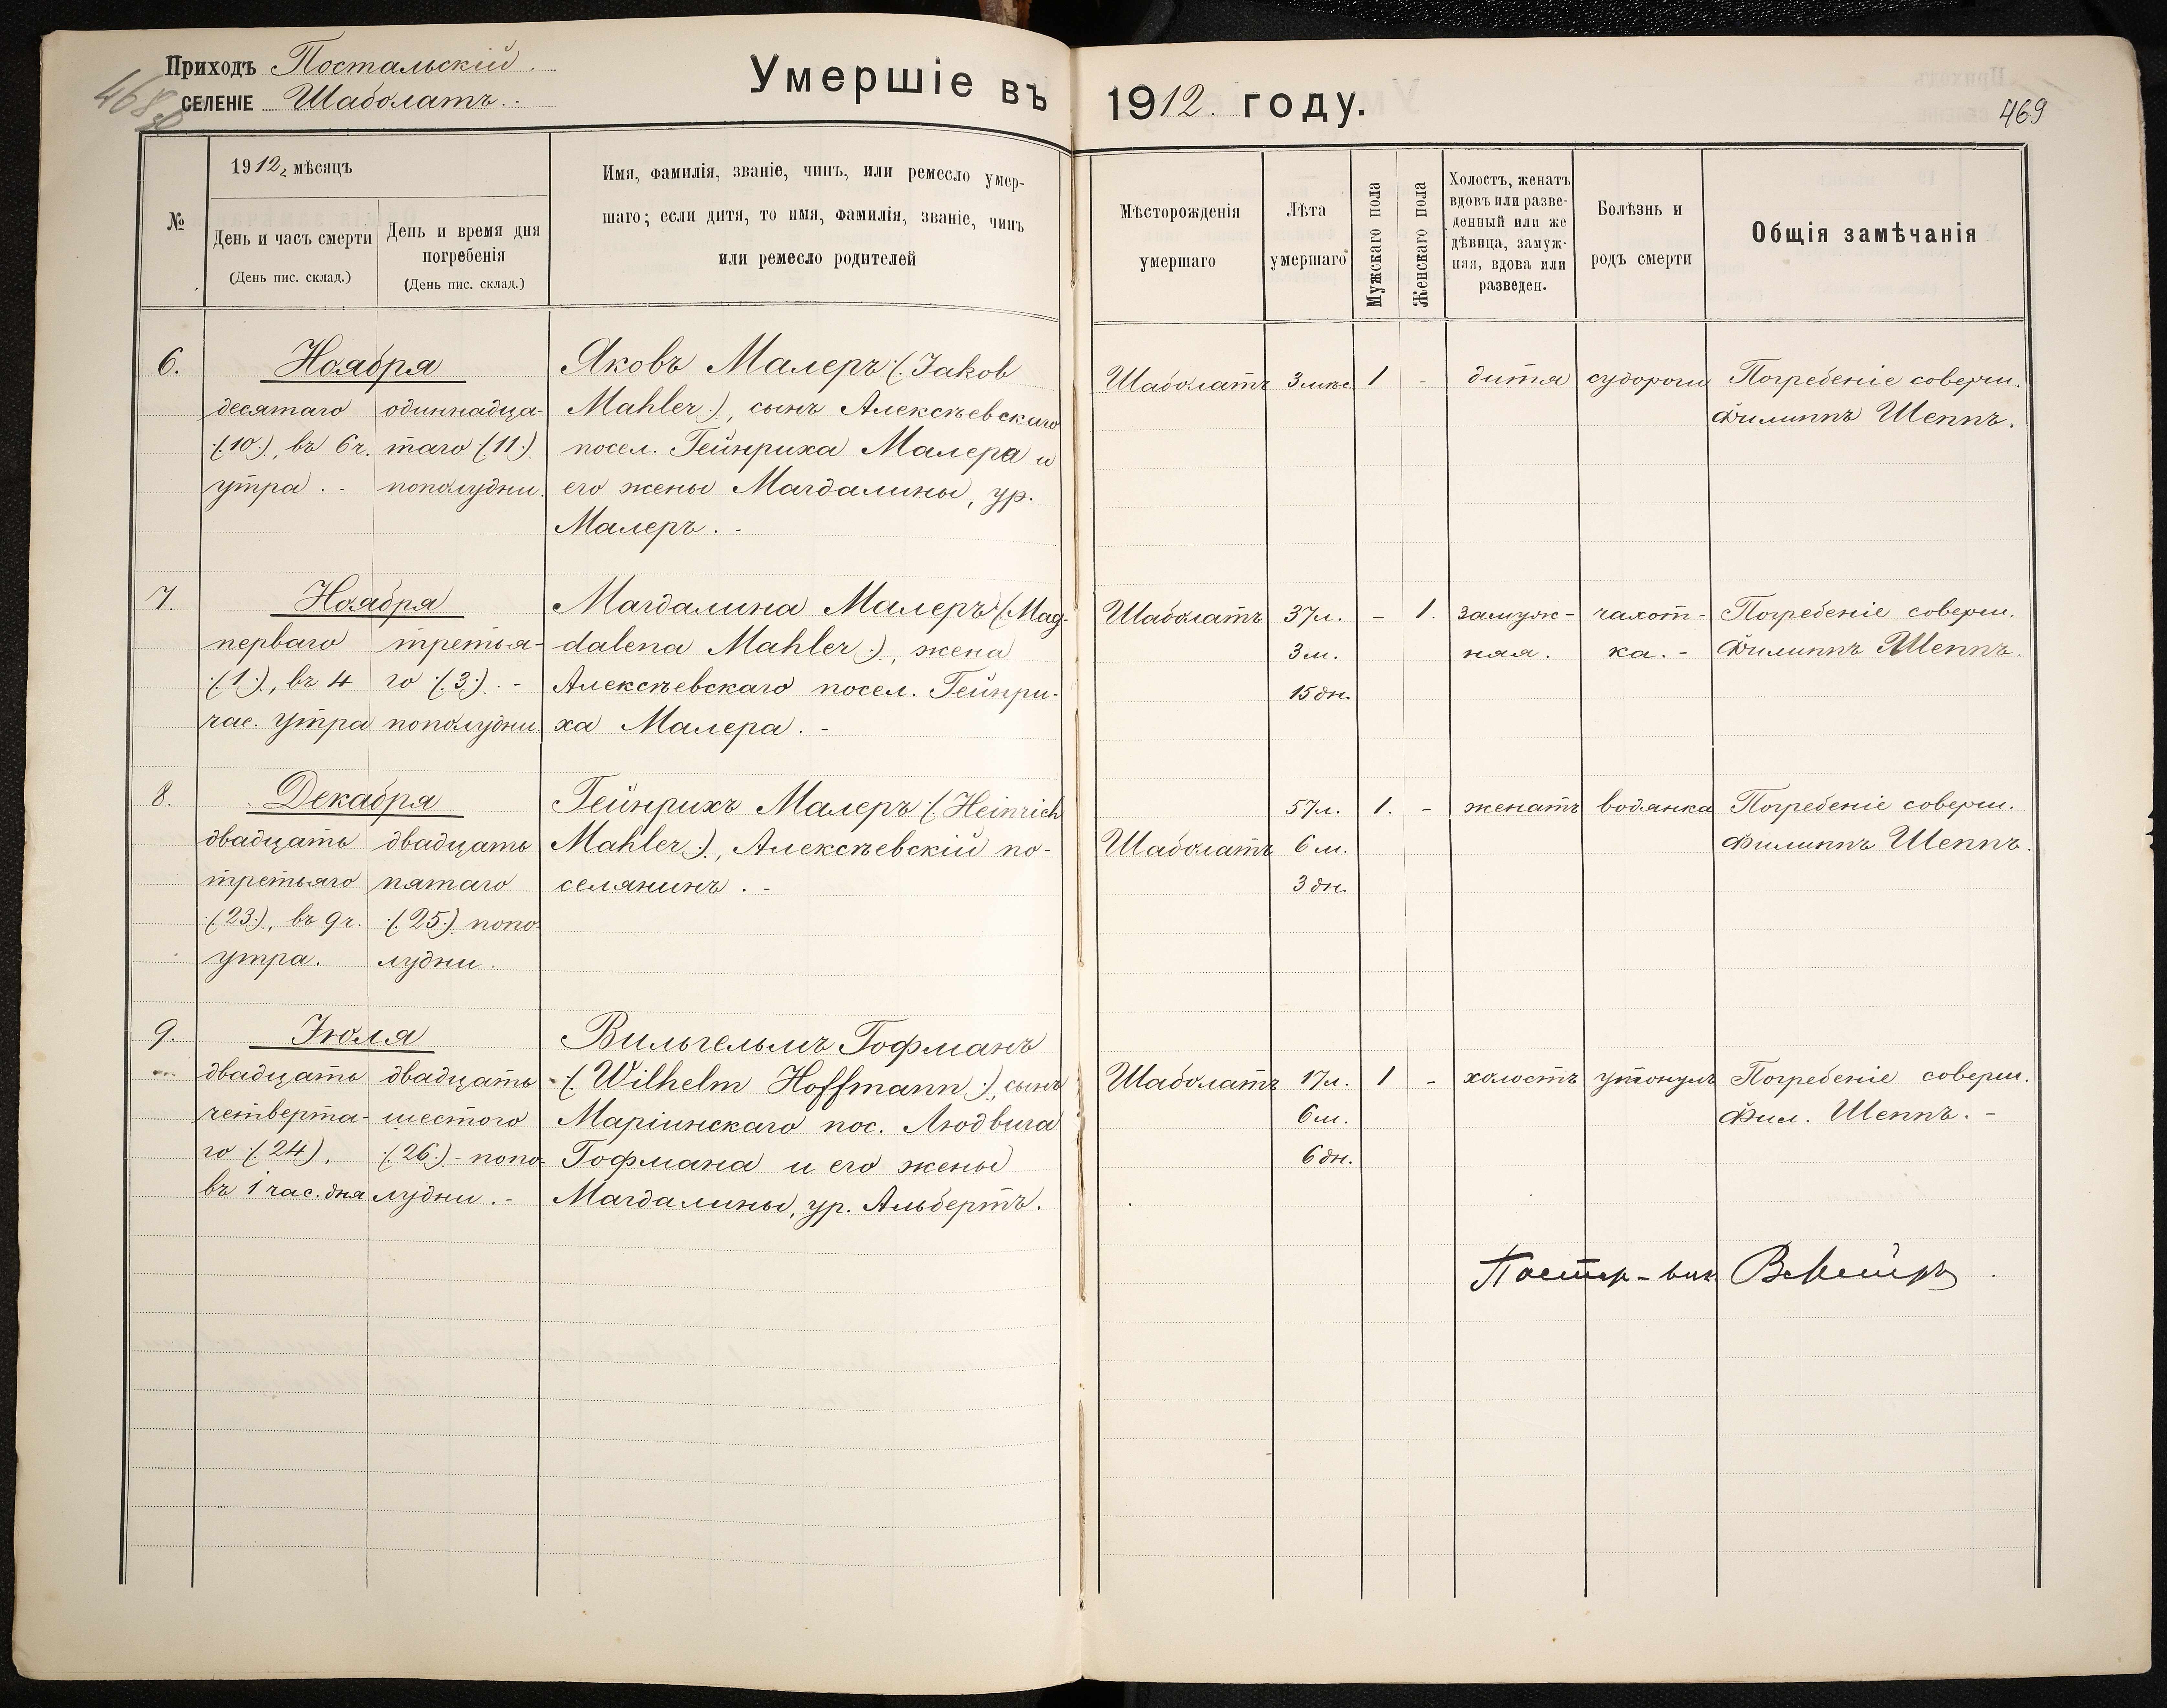 Приходъ Постальскій.
селеніе Шаболатъ.
Умершіе въ 1912 году.
469
№
1912, мѣсяцъ
День и часъ смерти
(День пис. склад.)
День и время дня
погребенія
(День пис. склад.)
Имя, фамилія, званіе, чинъ, или ремесло умер-
шаго; если дитя, то имя, фамилія, званіе, чинъ
или ремесло родителей
Мѣсторожденія
умершаго
Лѣта
умершаго
Мужскаго пола
Женскаго пола
Холостъ, женатъ
вдовъ или разве-
денный или же
дѣвица, замуж-
няя, вдова или
разведен.
Болѣзнь и
родъ смерти
Общія замѣчанія
6.
Ноября
десятаго
(:10:), въ 6 ч.
утра. -
одиннадца-
таго (:11:)
пополудни.
Яковъ Малеръ (: Jakob
Mahler :), сынъ Алексѣевскаго
посел. Гейнриха Малера и
его жены Магдалины, ур.
Малеръ. -
Шаболатъ
3 мѣс.
1
-
дитя
судороги
Погребеніе соверш.
Филиппъ Шеппъ.
7.
Ноября
перваго
(:1:), въ 4
час. утра
третья-
го (:3:). -
пополудни.
Магдалина Малеръ (: Mag-
dalena Mahler :), жена
Алексѣевскаго посел. Гейнри-
ха Малера. -
Шаболатъ
37 л.
3 м.
15 дн.
-
1.
замуж-
няя.
чахот-
ка. -
Погребеніе соверш.
Филиппъ Шеппъ.
8.
Декабря
двадцать
третьяго
(:23:), въ 9 ч.
утра.
двадцать
пятаго
(:25:) попо-
лудни.
Гейнрихъ Малеръ (: Heinrich
Mahler :), Алексѣевскій по-
селянинъ. -
Шаболатъ
57 л.
6 м.
3 дн.
1.
-
женатъ
водянка
Погребеніе соверш.
Филиппъ Шеппъ.
9.
Іюля
двадцать
четверта-
го (:24:),
въ 1 час. дня
двадцать
шестого
(:26:) - попо-
лудни. -
Вильгельмъ Гофманъ
(: Wilhelm Hoffmann :), сынъ
Маріинскаго пос. Людвига
Гофмана и его жены
Магдалины, ур. Альбертъ.
Шаболатъ
17 л.
6 м.
6 дн.
1
-
холостъ
утонулъ
Погребеніе соверш.
Фил. Шеппъ. -